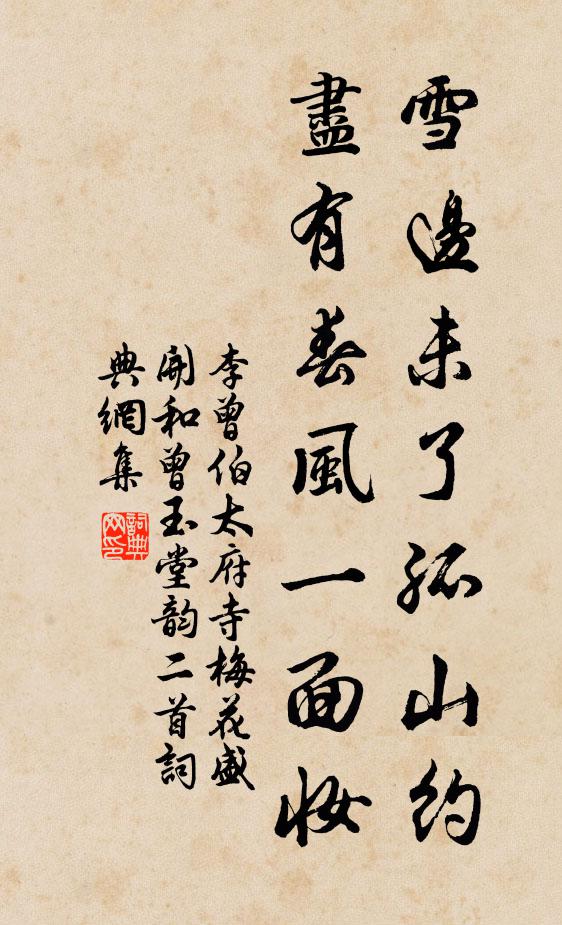 雪邊未了孤山約
盡有春風一面妝
李曾伯太府寺梅花盛
開和曾玉堂韵二首詞
典網集
詞典网印